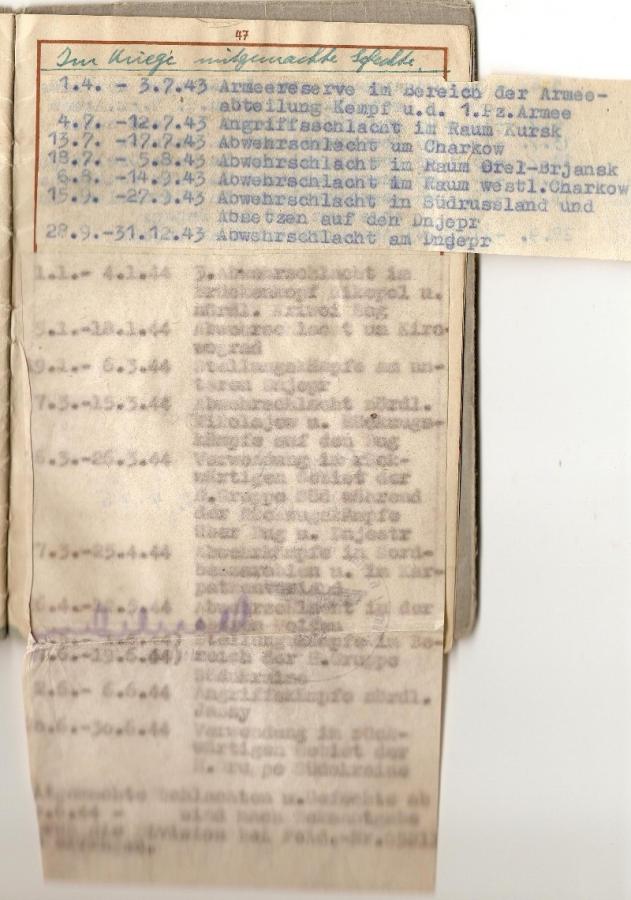 47
Im Kriege mitgemachte Gefechte.
1.4. - 3.7.43 Armeereserve im Bereich der Armee-
abteilung Kempf u.d. 1.Pz.Armee
4.7. -12.7.43 Angriffsschlacht im Raum Kursk
13.7. -17.7.43 Abwehrschlacht um Charkow
18.7. - 5.8.43 Abwehrschlacht im Raum Orel-Brjansk
6.8. -14.9.43 Abwehrschlacht im Raum westl.Charkow
15.9. -27.9.43 Abwehrschlacht in Südrussland und
Absetzen auf den Dnjepr
28.9.-31.12.43 Abwehrschlacht am Dnjepr
1.1.- 4.1.44 3.Abwehrschlacht im
Brückenkopf Nikopol u.
nördl. Kriwoi Rog
5.1.-18.1.44 Abwehrschlacht um Kiro-
wograd
9.1.- 6.3.44 Stellungskämpfe am un-
teren Dnjepr
7.3.-15.3.44 Abwehrschlacht nördl.
Nikolajew u. Rückzugs-
kämpfe auf den Bug
6.3.-26.3.44 Verwendung im rück-
wärtigen Gebiet der
H.Gruppe Süd während
der Rückzugskämpfe
über Bug u. Dnjestr
7.3.-25.4.44 Abwehrkämpfe in Nord-
bessarabien u. im Kar-
patenvorland
Abwehrschlacht in der
Stellungskämpfe im Be-
-19.6.44) reich der H.Gruppe
Südukraine
2.6.- 6.6.44 Angriffskämpfe nördl.
Jassy
.6.-30.6.44 Verwendung im rück-
wärtigen Gebiet der
H.Gruppe Südukraine
Schlachten u.Gefechte ab
sind nach
Division bei Feld.-Nr.